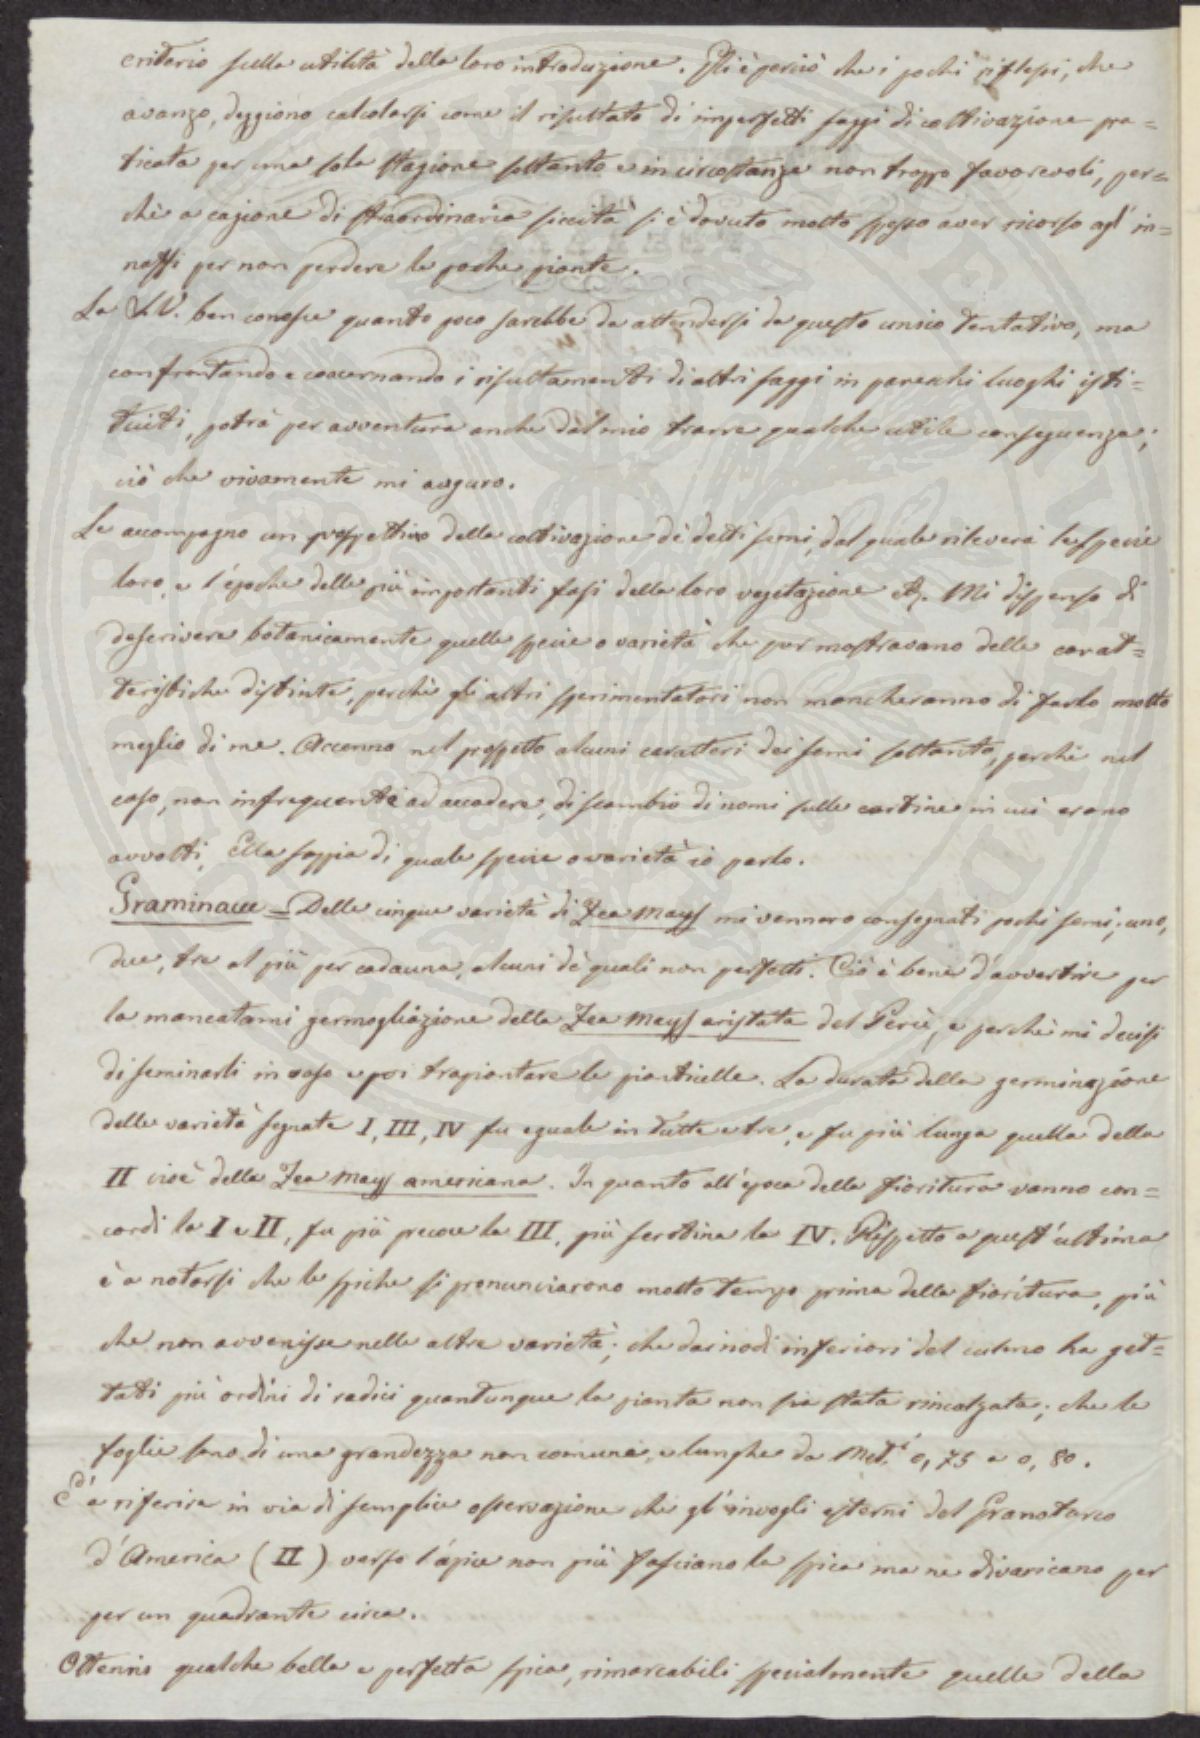 criterio sulla utilità della loro introduzione. Gli è perciò che i pochi riflessi, che
avanzo, deggiono calcolarsi come il risultato di imperfetti saggi di coltivazione pra=
ticata per una sola stagione soltanto e in circostanze non troppo favorevoli, per=
chè a cagione di straordinaria siccità si è dovuto molto spesso aver ricorso agl' in=
naffi per non perdere le poche piante.
La S.V. ben conosce quanto poco sarebbe da attendersi da questo unico tentativo, ma
confrontando e concernando i risultamenti di altri saggi in parecchi luoghi isti=
tuiti, potrà per avventura anche dal mio trarre qualche utile conseguenza;
ciò che vivamente mi auguro.
Le accompagno un prospettino della coltivazione de' detti semi, dal quale rileverà le specie
loro, e l'epoche delle più importanti fasi della loro vegetazione &. Mi dispenso di
descrivere botanicamente quelle specie o varietà che pur mostravano delle carat=
teristiche distinte, perchè gli altri sperimentatori non mancheranno di farlo molto
meglio di me. Accenno nel prospetto alcuni caratteri dei semi soltanto, perchè nel
caso, non infrequente ad accadere, di scambio di nomi sulle cartine in cui erano
avvolti, Ella sappia di quale specie o varietà io parlo.
Graminacee = Delle cinque varietà di Zea Mays mi vennero consegnati pochi semi; uno,
due, tre al più per cadauna, alcuni de' quali non perfetti. Ciò è bene d'avvertire per
la mancatami germogliazione della Zea Mays aristata del Perù, e perchè mi decisi
di seminarli in vaso e poi trapiantare le pianticelle. La durata della germinazione
delle varietà segnate I, III, IV fu eguale in tutte e tre, e fu più lunga quella della
II cioè della Zea Mays americana. In quanto all'epoca della fioritura vanno con=
cordi la I e II, fu più precoce la III, più serotina la IV. Rispetto a quest'ultima
è a notarsi che le spiche si pronunciarono molto tempo prima della fioritura, più
che non avvenisse nelle altre varietà; che dai nodi inferiori del culmo ha get=
tati più ordini di radici quantunque la pianta non sia stata rincalzata; che le
foglie sono di una grandezza non comune, e lunghe da Met.i 0,75 a 0,80.
È a riferire in via di semplice osservazione che gl'invogli esterni del Granoturco
d'America (II) verso l'apice non più fasciano la spica ma ne divaricano per
per un quadrante circa.
Ottenni qualche bella e perfetta spica, rimarcabili specialmente quelle della